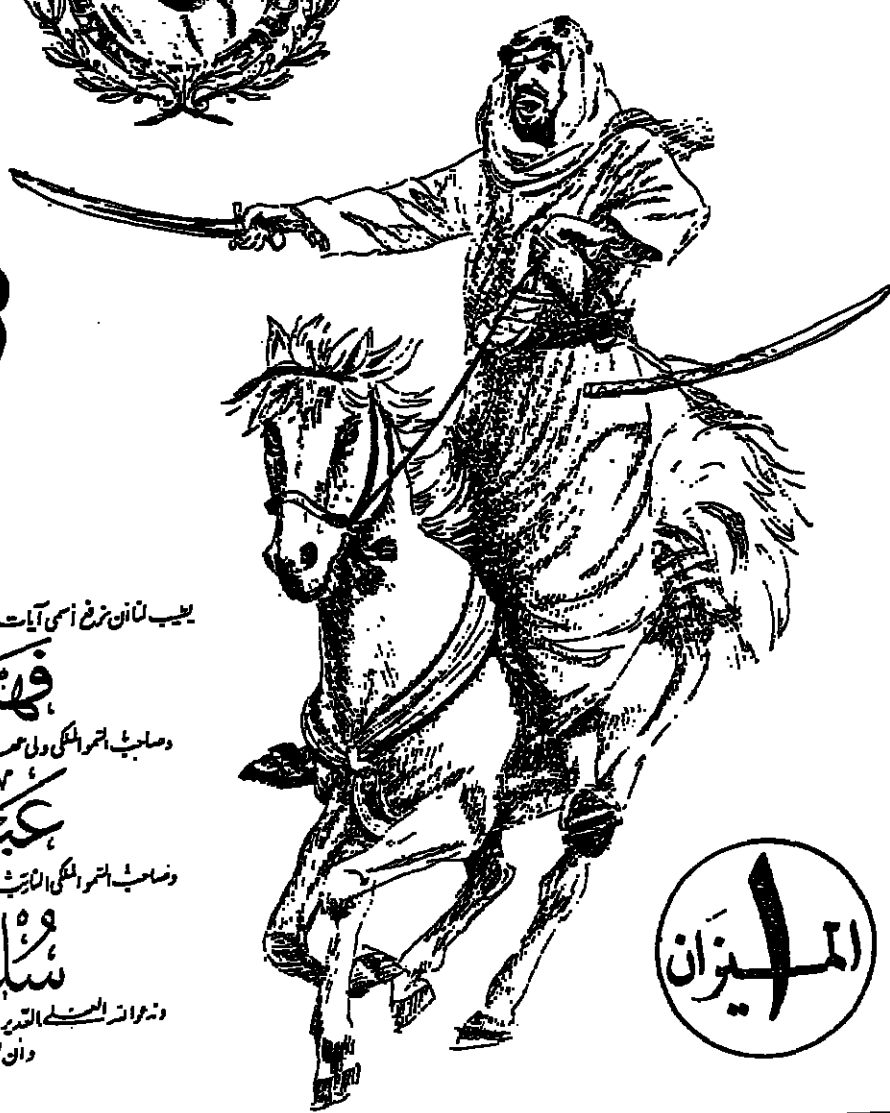 يطيب لنا أن نرفع أسمى آيات
وصاحب السمو الملكي ولي
وصاحب السمو الملكي النائب
وندعوا الله العلي القدير
وأن
١ الميزان